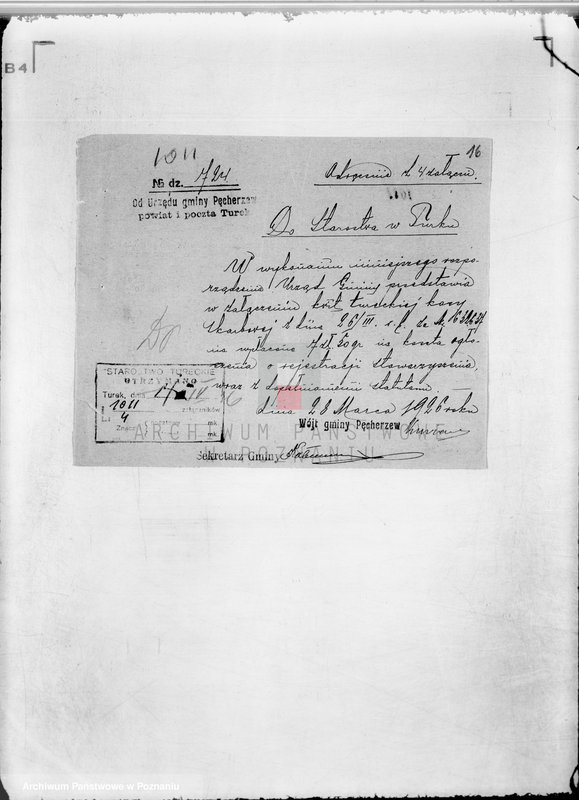 B4
1011
16
№ dz. 724
Od Urzędu gminy Pęcherzew
powiat i poczta Turek
z 4 załącz.
1011
Do Starostwa w Turku
W wykonaniu niniejszego rozpo-
rządzenia Urząd Gminy przedstawia
w załączeniu kwit tureckiej kasy
skarbowej z dnia 26/III. r. b. za №
na wpłacone 7 zł. 50 gr na koszta ogło-
szenia o rejestracji stowarzyszenia,
wraz z statutami.
dnia 28 Marca 1926 roku
Wójt gminy Pęcherzew
Sekretarz Gminy
STAROSTWO TURECKIE
OTRZYMANO
Turek, dnia IV 26
L. 1011 załączników
4
Znacz. mk
mk
ARCHIWUM PAŃSTWOWE
W POZNANIU
Archiwum Państwowe w Poznaniu